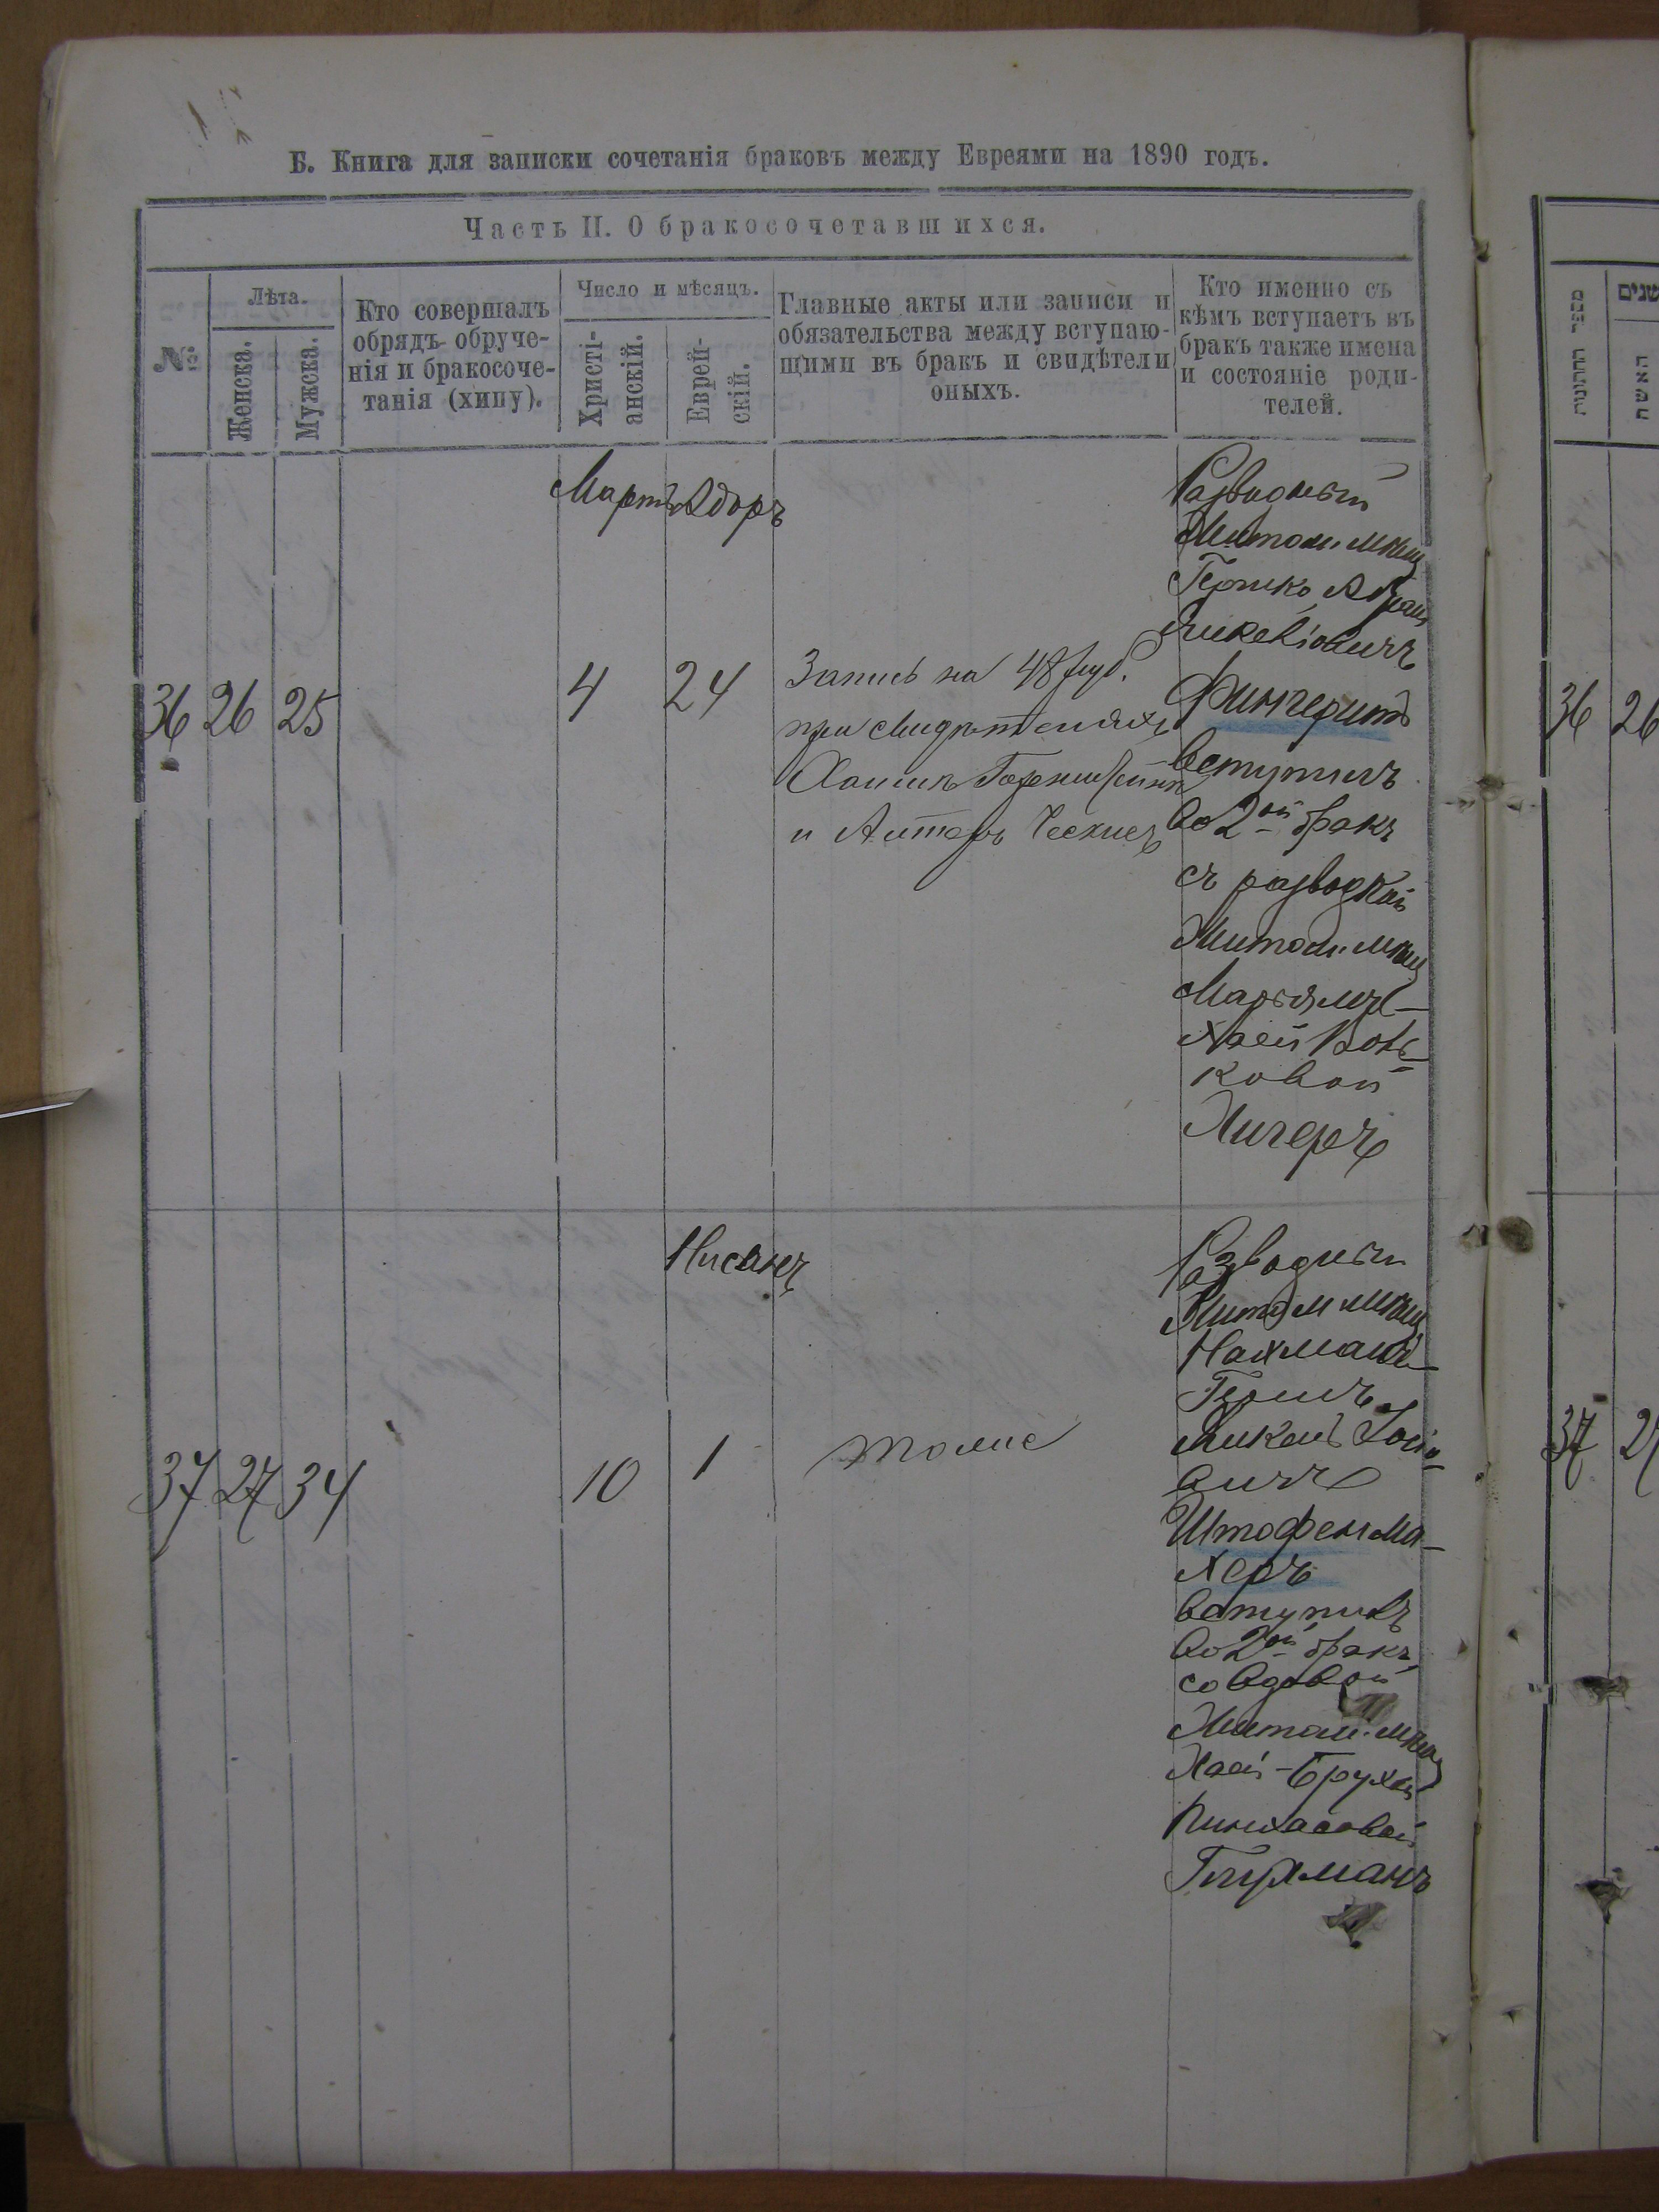 Б. Книга для записки сочетанія браковъ между Евреями на 1890 годъ.
Часть II. О бракосочетавшихся.
№
Лѣта.
Женска.
Мужска.
Кто совершалъ
обрядъ обруче-
нія и бракосоче-
танія (хипу).
Число и мѣсяцъ.
Христі-
анскій.
Еврей-
скій.
Главные акты или записи и
обязательства между вступаю-
щими въ бракъ и свидѣтели
оныхъ.
Кто именно съ
кѣмъ вступаетъ въ
бракъ также имена
и состояніе роди-
телей.
Мартъ Адоръ
36 26 25 4 24
Запись на 48 руб.
при свидѣтеляхъ
и Алтеръ
Разводный
Житом. мѣщ
Гершко
Фингерутъ
вступилъ
во 2ой бракъ
съ разводкой
Житом. мѣщ
Марьямъ-
Хаей Воль-
ковой
Хигеръ
Нисанъ
37 27 34 10 1 тоже
Разводный
Житом мѣщ
Нахманъ-
Гершъ
вичъ
Штофенма-
херъ
вступилъ
во 2ой бракъ
со вдовой
Житом. мѣщ
Хаей-Брухой
Пинхасовой
Глухманъ
מספר החתונות
שנים
האשה
36 26
37 27